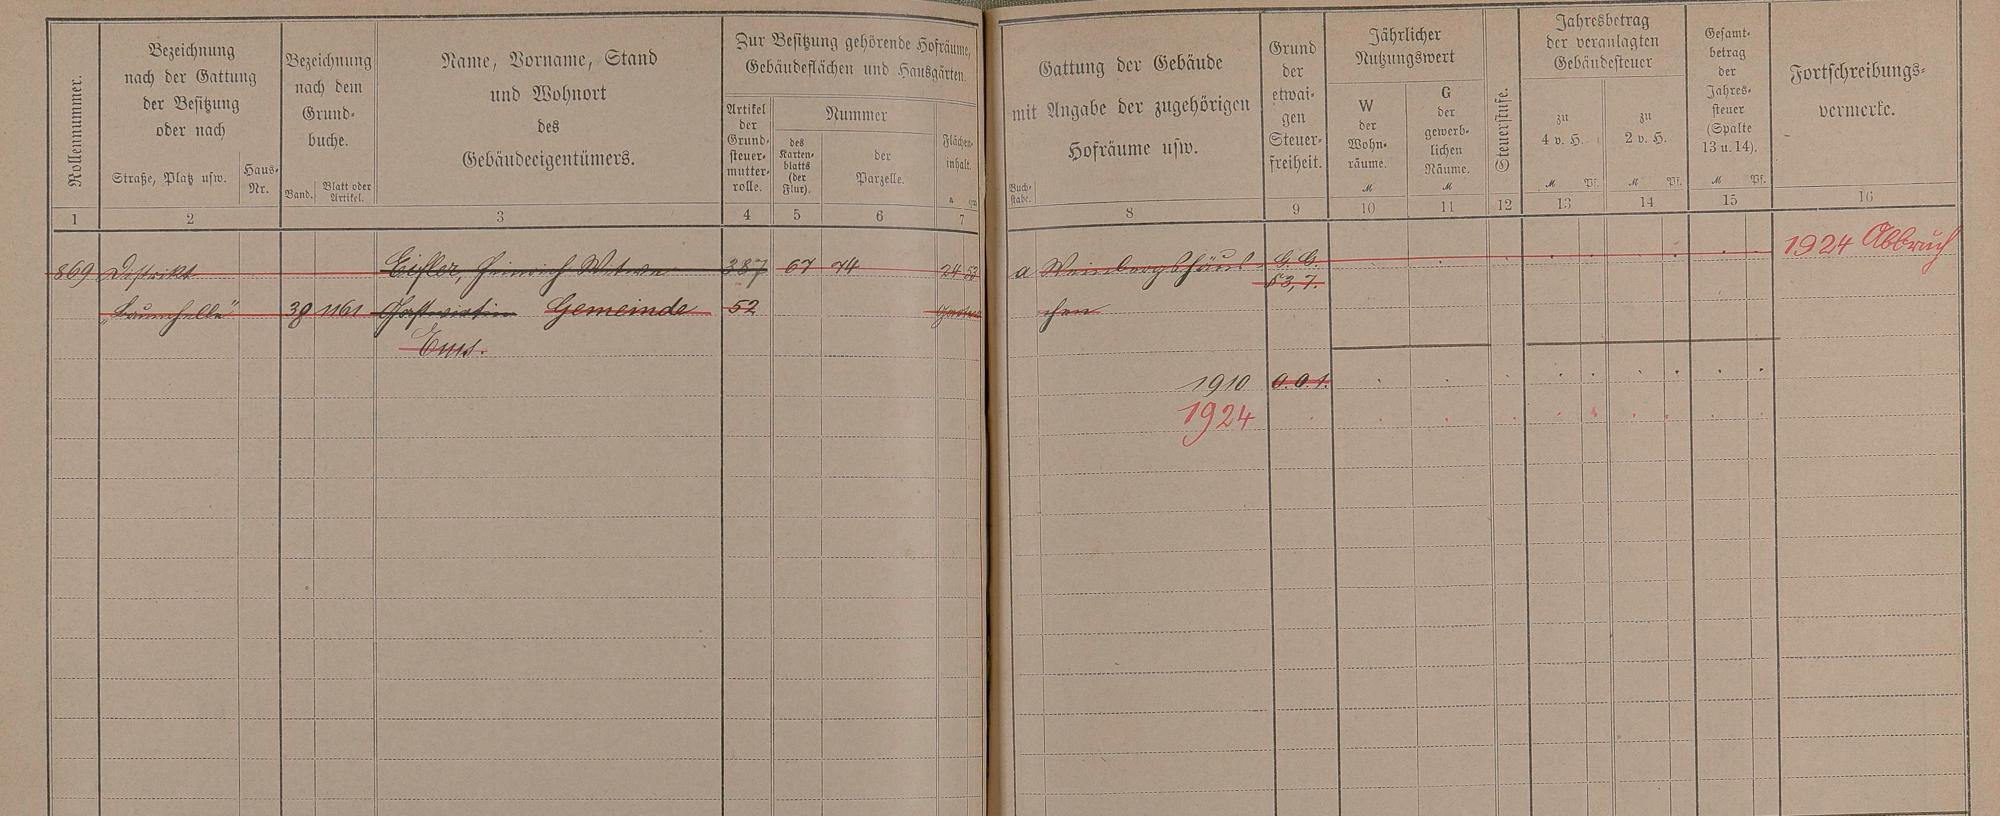 Rollennummer.
Bezeichnung
nach der Gattung
der Besitzung
oder nach
Straße, Platz usw.
Haus-
Nr.
Bezeichnung
nach dem
Grund-
buche.
Band.
Blatt oder
Artikel.
Name, Vorname, Stand
und Wohnort
des
Gebäudeeigentümers.
Zur Besitzung gehörende Hofräume,
Gebäudeflächen und Hausgärten.
Artikel
der
Grund-
steuer-
mutter-
rolle.
Nummer
des
Karten-
blatts
(der
Flur).
der
Parzelle.
Flächen-
inhalt.
a qm
1 2 3 4 5 6 7
869 Distrikt Eisler, Heinrich Witwe 387 67 74 24 53
38 1161 Gastwirtin Gemeinde 52
Ems.
Gattung der Gebäude
mit Angabe der zugehörigen
Hofräume usw.
Buch-
stabe.
Grund
der
etwai-
gen
Steuer-
freiheit.
Jährlicher
Nutzungswert
W
der
Wohn-
räume.
M
G
der
gewerb-
lichen
Räume.
M
Steuerstufe.
Jahresbetrag
der veranlagten
Gebäudesteuer
zu
4 v. H.
M Pf.
zu
2 v. H.
M Pf.
Gesamt-
betrag
der
Jahres-
steuer
(Spalte
13 u. 14).
M Pf.
Fortschreibungs-
vermerke.
8 9 10 11 12 13 14 15 16
a Weinbergshäus- G. G. 1924 Abbruch
53,7.
chen
1910
1924